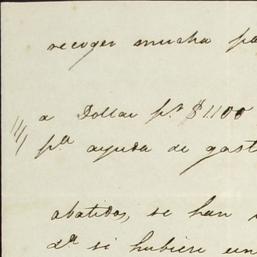 recoger mucha pa
a Dollar pr. $1100
pa. ayuda de gast
abatidos, se han
Da. si hubiere un